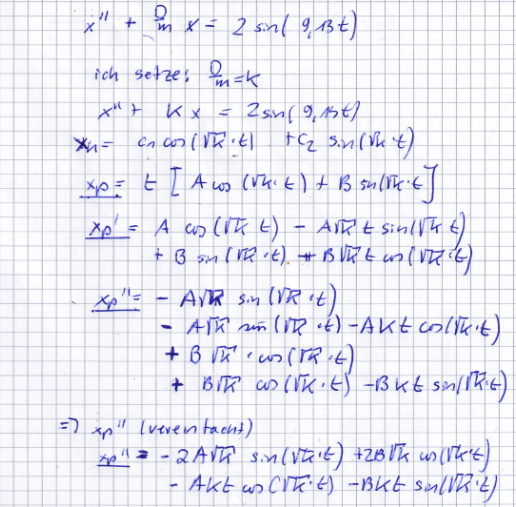 x'' + D/m x = 2 sin( 9,13t)
ich setze: D/m = k
x'' + k x = 2 sin( 9,13t)
xh = c1 cos(√k·t) + c2 sin(√k·t)
xp = t [ A cos (√k·t) + B sin(√k·t]
xp' = A cos(√k t) - A√k t sin(√k t)
+ B sin(√k·t) + B√k t cos(√k·t)
xp'' = - A√k sin(√k·t)
- A√k sin(√k·t) - Akt cos(√k·t)
+ B√k · cos(√k·t)
+ B√k cos(√k·t) - Bkt sin(√k·t)
=> xp'' (vereinfacht)
xp'' = - 2A√k sin(√k·t) + 2B√k cos(√k·t)
- Akt cos(√k·t) - Bkt sin(√k·t)